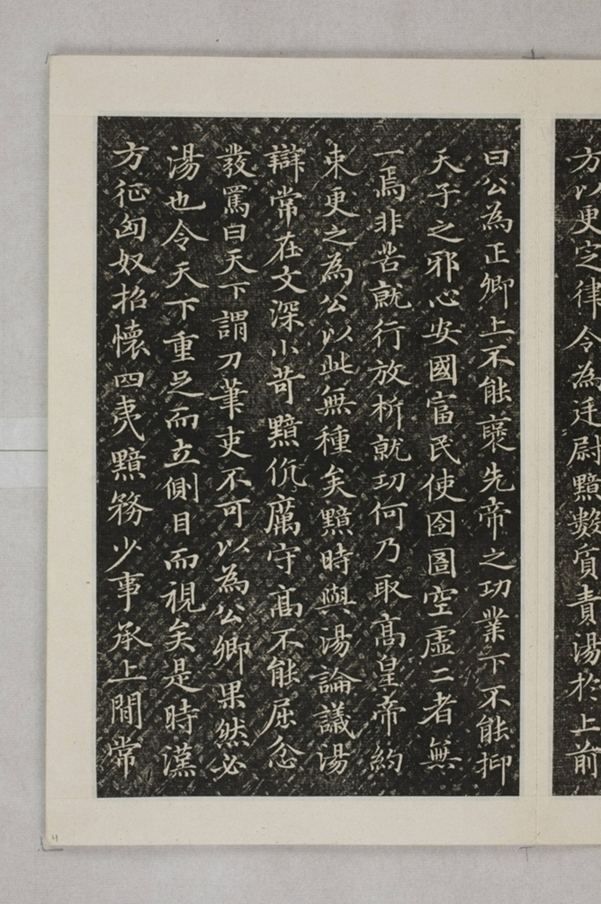 方以更定律令為廷尉黯數質責湯於上前
曰公為正卿上不能襃先帝之功業下不能抑
天子之邪心安國富民使囹圄空虛二者無
一焉非苦就行放析就功何乃取高皇帝約
束更之為公以此無種矣黯時與湯論議湯
辯常在文深小苛黯伉厲守高不能屈忿
發罵曰天下謂刀筆吏不可以為公卿果然必
湯也令天下重足而立側目而視矣是時漢
方征匈奴招懷四夷黯務少事承上閒常